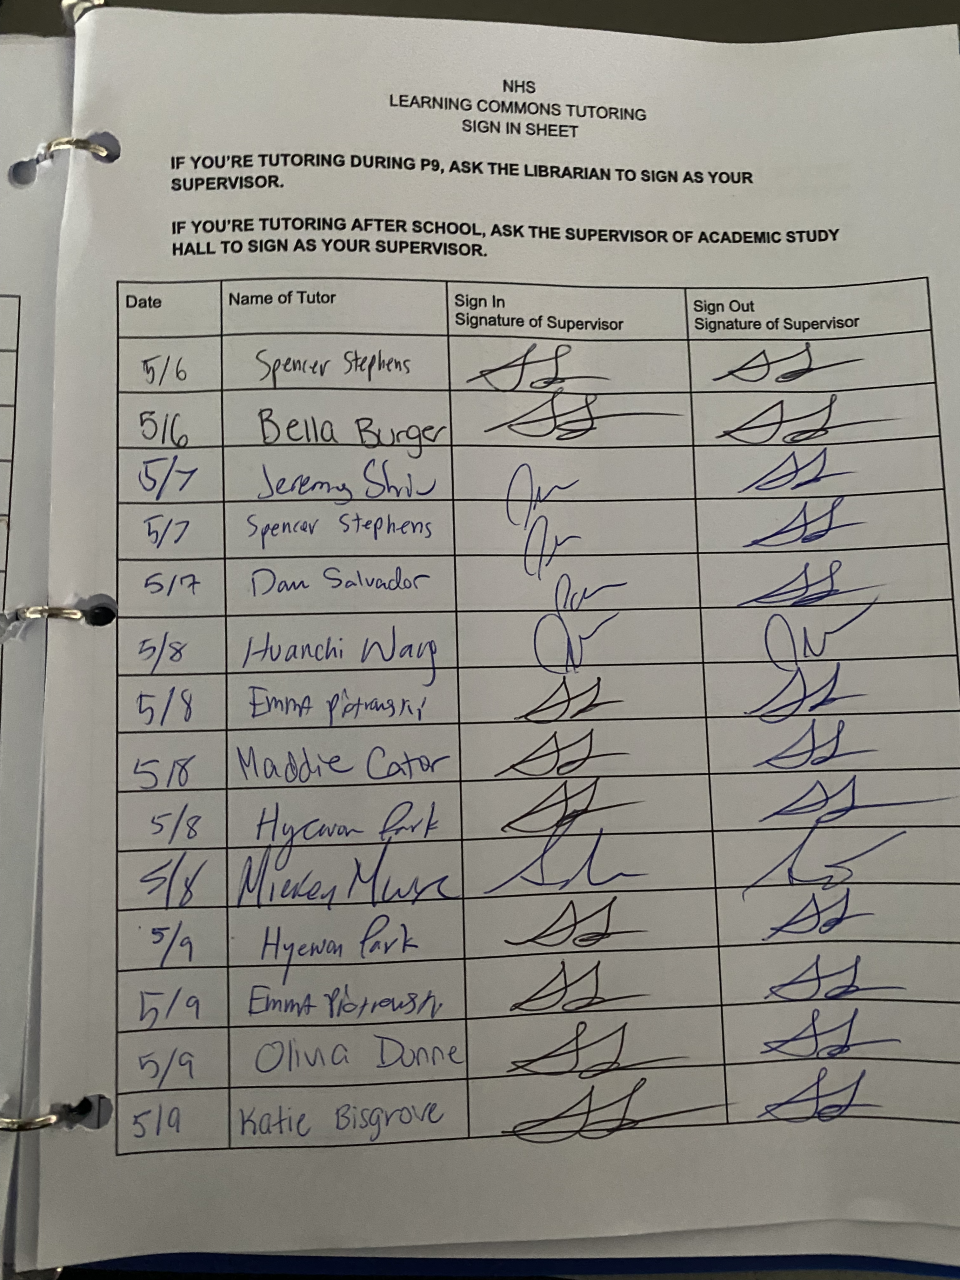 NHS
LEARNING COMMONS TUTORING
SIGN IN SHEET
IF YOU'RE TUTORING DURING P9, ASK THE LIBRARIAN TO SIGN AS YOUR
SUPERVISOR.
IF YOU'RE TUTORING AFTER SCHOOL, ASK THE SUPERVISOR OF ACADEMIC STUDY
HALL TO SIGN AS YOUR SUPERVISOR.
Date Name of Tutor Sign In Sign Out
Signature of Supervisor Signature of Supervisor
5/6 Spencer Stephens
5/6 Bella Burger
5/7 Jeremy
5/7 Spencer Stephens
5/7 Dan Salvador
5/8 Huanchi Wang
5/8 Emma Piotrowski
5/8 Maddie Cator
5/8 Hyewon Park
5/8 Mickey
5/9 Hyewon Park
5/9 Emma Piotrowski
5/9 Olivia Dunne
5/9 Katie Bisgrove